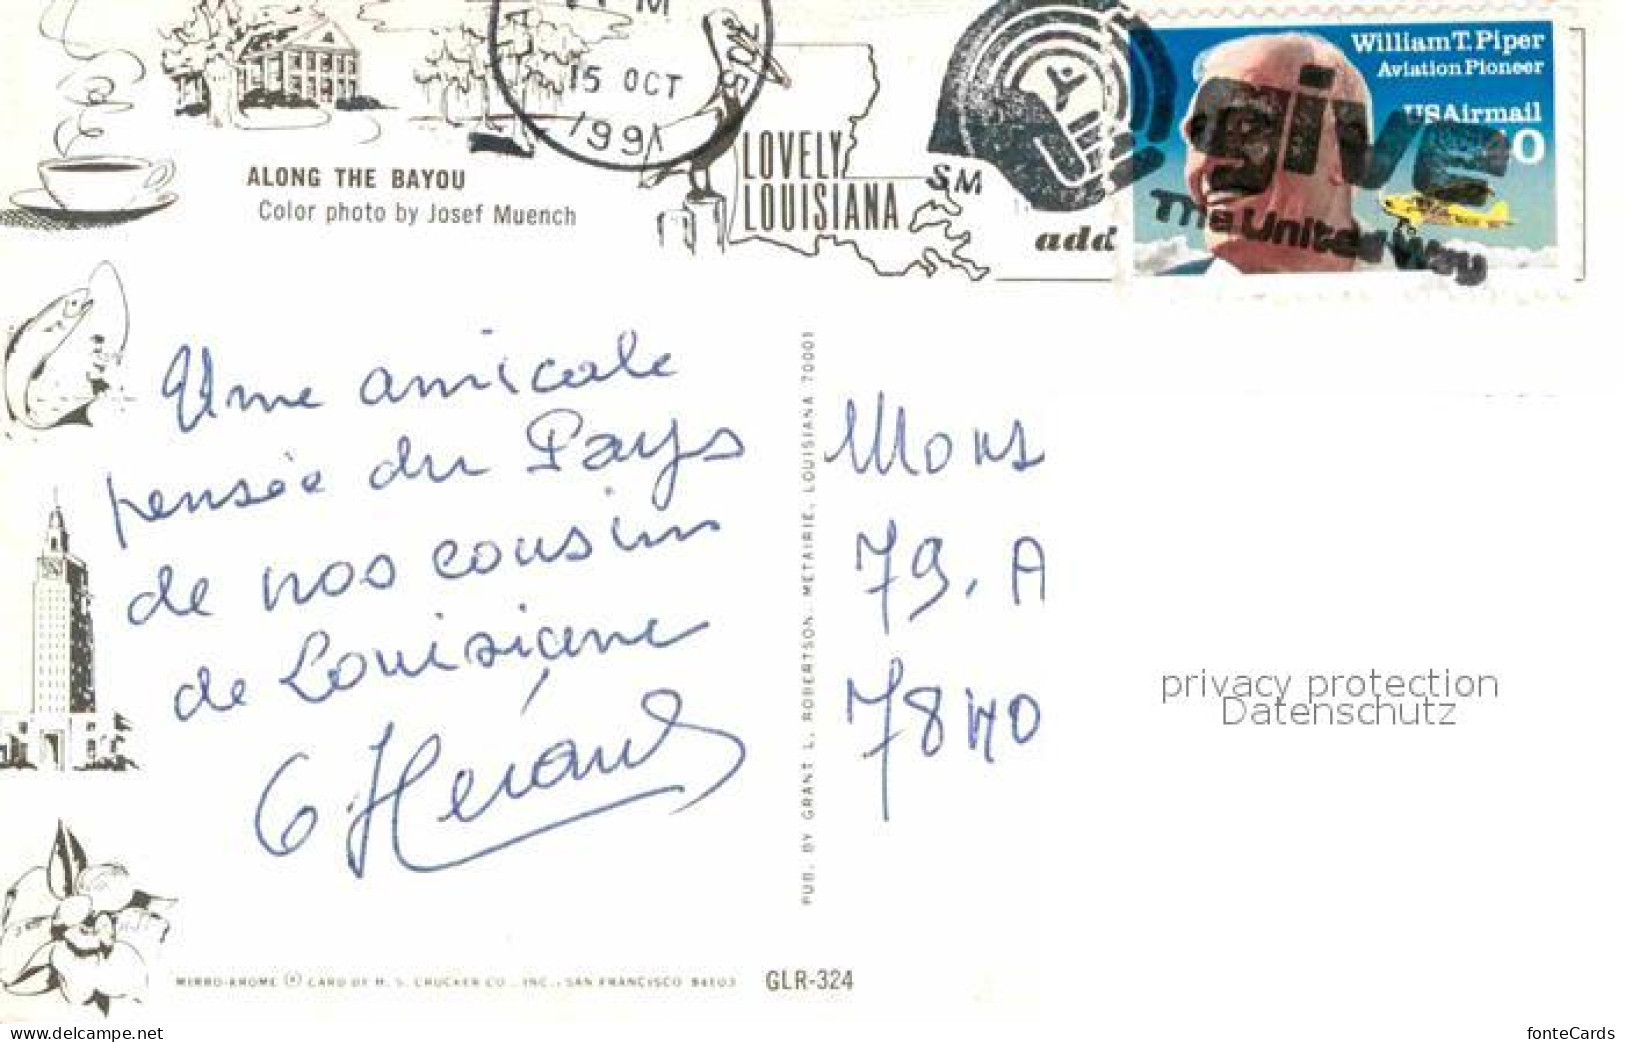 PM
15 OCT
1991
705
William T. Piper
Aviation Pioneer
USAirmail
40
give
The United Way
ALONG THE BAYOU
Color photo by Josef Muench
LOVELY
LOUISIANA
SM
add
Une amicale
pensée du Pays
de nos cousins
de Louisiane
PUB. BY GRANT L. ROBERTSON, METAIRIE, LOUISIANA 70001
Mons
79, A
78440
privacy protection
Datenschutz
MIRRO-KROME ® CARD BY H. S. CROCKER CO., INC., SAN FRANCISCO 94103
GLR-324
www.delcampe.net
fonteCards